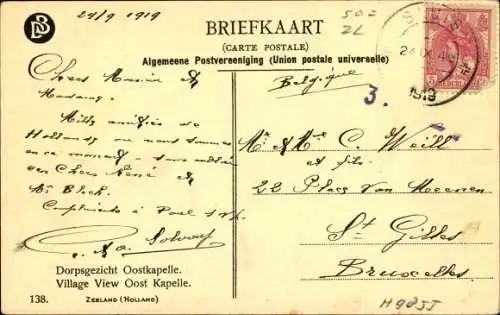 24/9 1919
BRIEFKAART
(CARTE POSTALE)
Algemeene Postvereeniging (Union postale universelle)
Belgique
50=
2L
3.
1919
Chers Monsieur &
Madame.
Mille amitiés de
Hollande ou nous sommes
en ce moment
Chers René &
Mr Bloch.
Compliments à Paul
Solvay
Mr & Me C. Weill
et fils
22 Place Van Meenen
St Gilles
Bruxelles
Dorpsgezicht Oostkapelle.
Village View Oost Kapelle.
138. ZEELAND (HOLLAND)
H9855